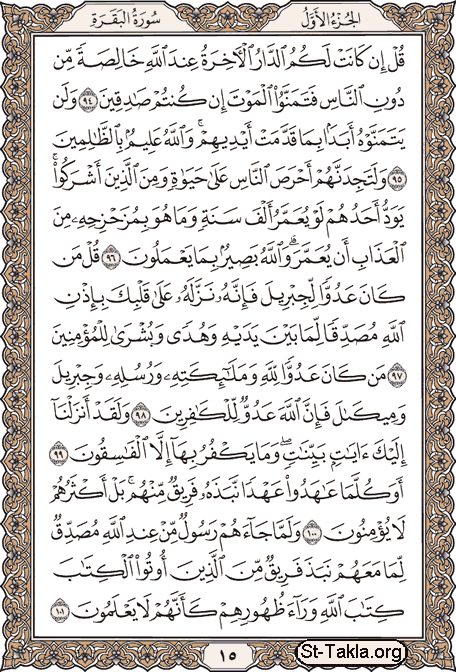 سُورَةُ البَقَرَةِ
الجُزءُ الأَوَّلُ
قُلۡ إِن كَانَتۡ لَكُمُ ٱلدَّارُ ٱلۡأٓخِرَةُ عِندَ ٱللَّهِ خَالِصَةٗ مِّن
دُونِ ٱلنَّاسِ فَتَمَنَّوُاْ ٱلۡمَوۡتَ إِن كُنتُمۡ صَٰدِقِينَ ٩٤ وَلَن
يَتَمَنَّوۡهُ أَبَدَۢا بِمَا قَدَّمَتۡ أَيۡدِيهِمۡۚ وَٱللَّهُ عَلِيمُۢ بِٱلظَّٰلِمِينَ
٩٥ وَلَتَجِدَنَّهُمۡ أَحۡرَصَ ٱلنَّاسِ عَلَىٰ حَيَوٰةٖ وَمِنَ ٱلَّذِينَ أَشۡرَكُواْۚ
يَوَدُّ أَحَدُهُمۡ لَوۡ يُعَمَّرُ أَلۡفَ سَنَةٖ وَمَا هُوَ بِمُزَحۡزِحِهِۦ مِنَ
ٱلۡعَذَابِ أَن يُعَمَّرَۗ وَٱللَّهُ بَصِيرُۢ بِمَا يَعۡمَلُونَ ٩٦ قُلۡ مَن
كَانَ عَدُوّٗا لِّجِبۡرِيلَ فَإِنَّهُۥ نَزَّلَهُۥ عَلَىٰ قَلۡبِكَ بِإِذۡنِ
ٱللَّهِ مُصَدِّقٗا لِّمَا بَيۡنَ يَدَيۡهِ وَهُدٗى وَبُشۡرَىٰ لِلۡمُؤۡمِنِينَ
٩٧ مَن كَانَ عَدُوّٗا لِّلَّهِ وَمَلَٰٓئِكَتِهِۦ وَرُسُلِهِۦ وَجِبۡرِيلَ
وَمِيكَىٰلَ فَإِنَّ ٱللَّهَ عَدُوّٞ لِّلۡكَٰفِرِينَ ٩٨ وَلَقَدۡ أَنزَلۡنَآ
إِلَيۡكَ ءَايَٰتِۭ بَيِّنَٰتٖۖ وَمَا يَكۡفُرُ بِهَآ إِلَّا ٱلۡفَٰسِقُونَ ٩٩
أَوَكُلَّمَا عَٰهَدُواْ عَهۡدٗا نَّبَذَهُۥ فَرِيقٞ مِّنۡهُمۚ بَلۡ أَكۡثَرُهُمۡ
لَا يُؤۡمِنُونَ ١٠٠ وَلَمَّا جَآءَهُمۡ رَسُولٞ مِّنۡ عِندِ ٱللَّهِ مُصَدِّقٞ
لِّمَا مَعَهُمۡ نَبَذَ فَرِيقٞ مِّنَ ٱلَّذِينَ أُوتُواْ ٱلۡكِتَٰبَ
كِتَٰبَ ٱللَّهِ وَرَآءَ ظُهُورِهِمۡ كَأَنَّهُمۡ لَا يَعۡلَمُونَ ١٠١
١٥
St-Takla.org